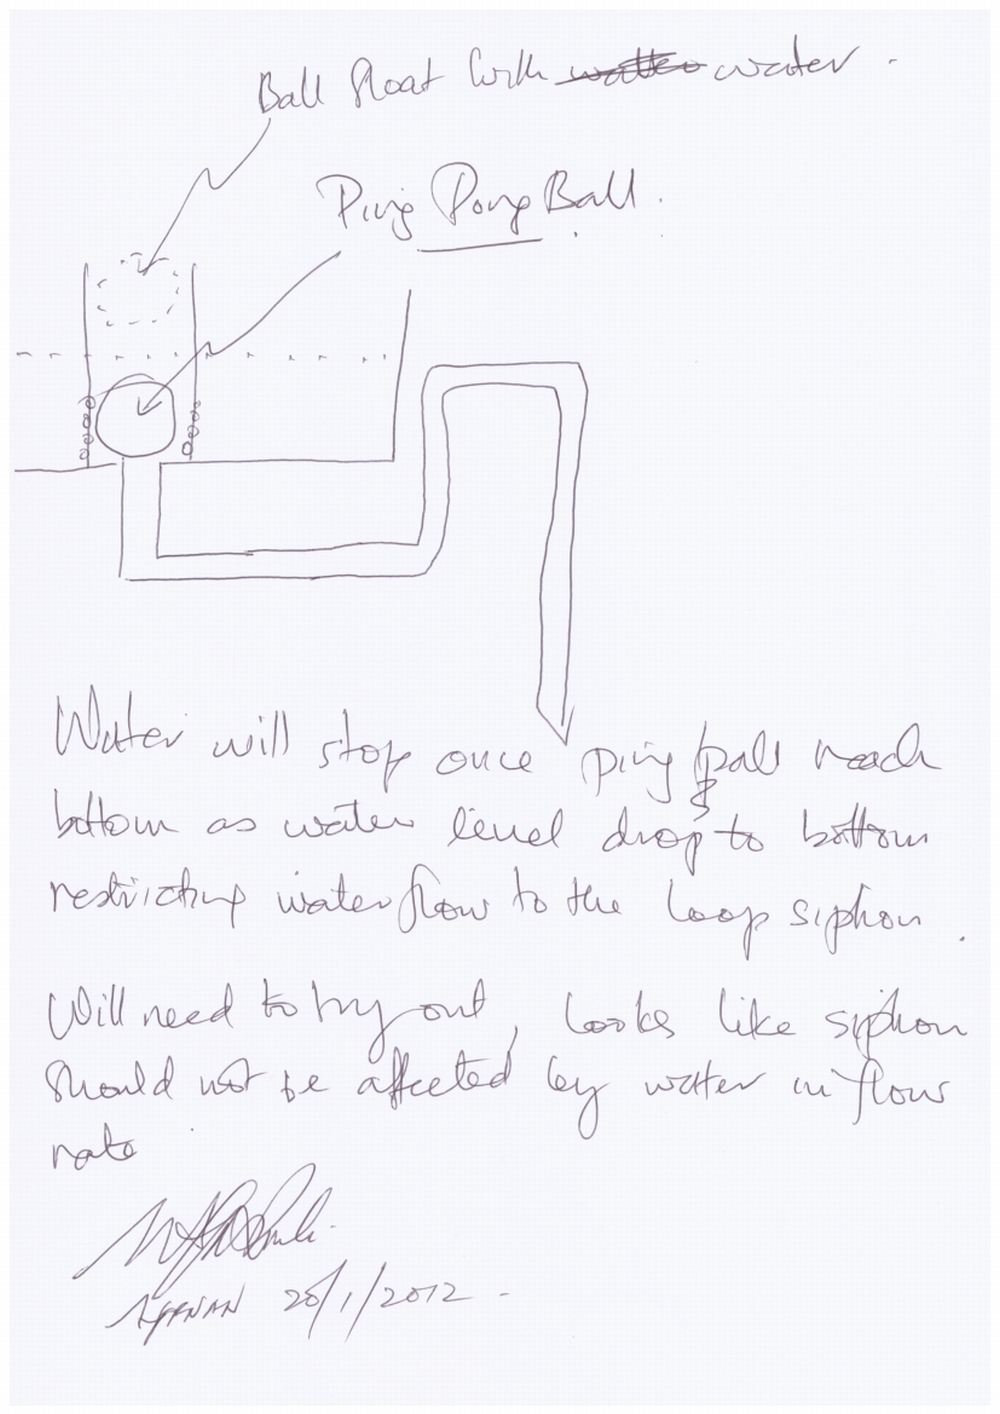 Ball float with water .
Ping Pong Ball .
Water will stop once ping ball reach
bottom as water level drop to bottom
restricting water flow to the loop siphon .
Will need to try out, looks like siphon
should not be affected by water in flow
rate
20/1/2012 -